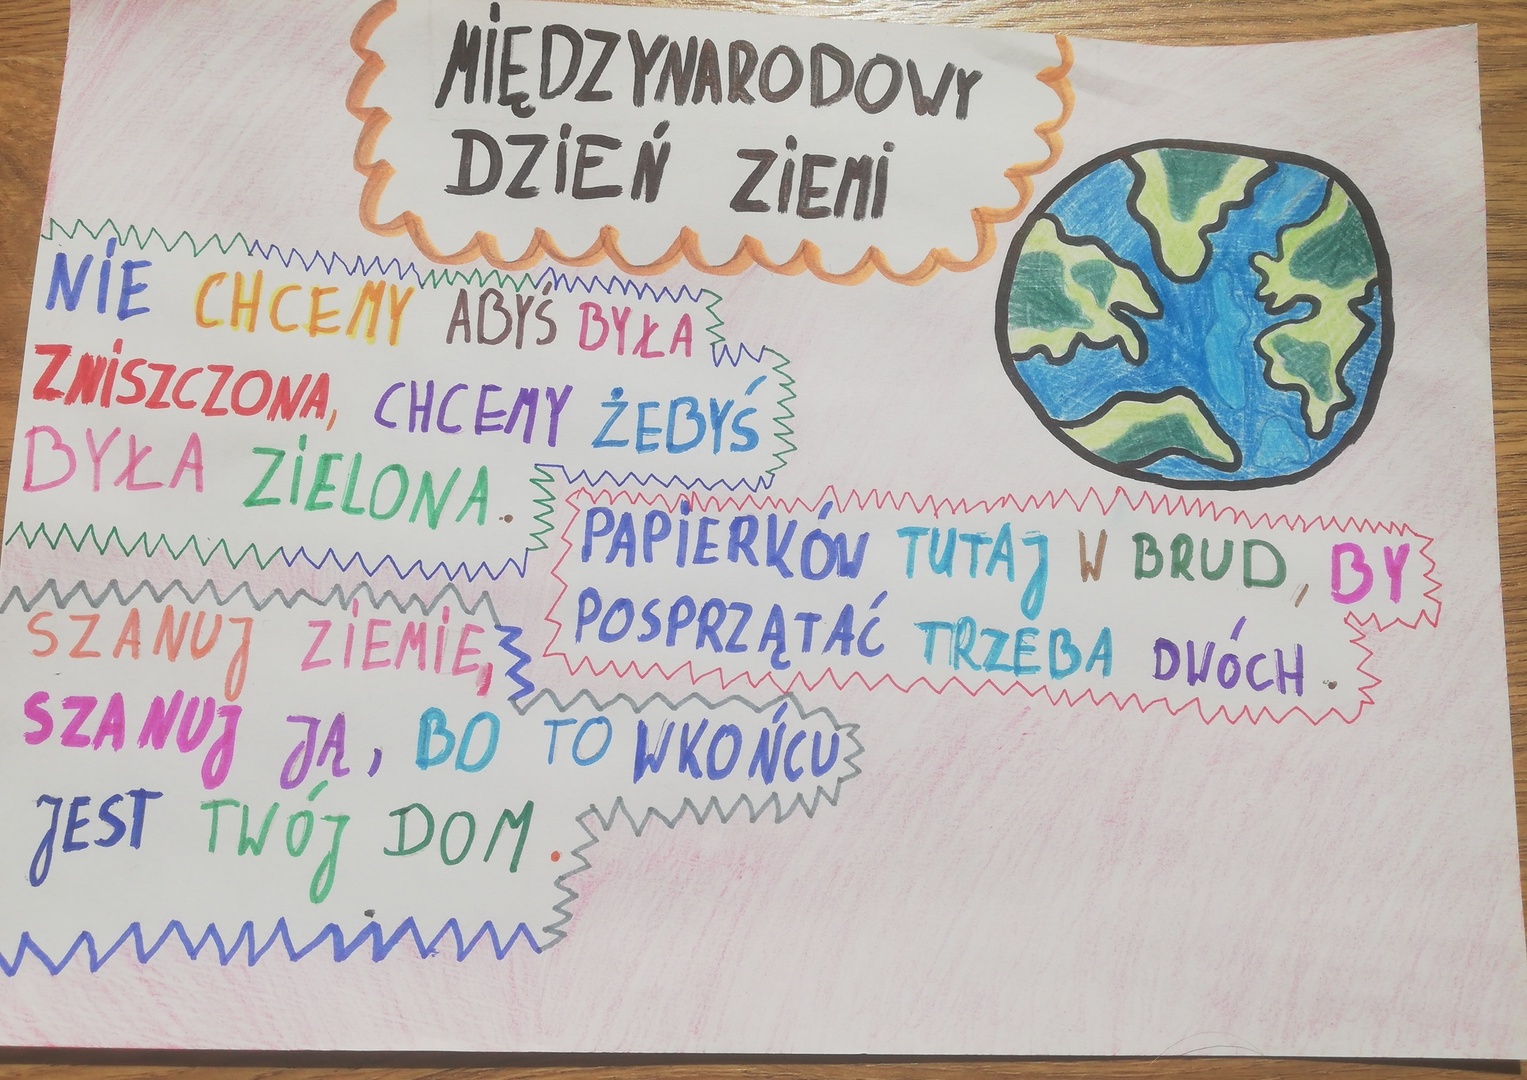 MIĘDZYNARODOWY
DZIEŃ ZIEMI
NIE CHCEMY ABYŚ BYŁA
ZNISZCZONA, CHCEMY ŻEBYŚ
BYŁA ZIELONA.
PAPIERKÓW TUTAJ W BRUD, BY
POSPRZĄTAĆ TRZEBA DWÓCH.
SZANUJ ZIEMIE,
SZANUJ JĄ, BO TO WKOŃCU
JEST TWÓJ DOM.